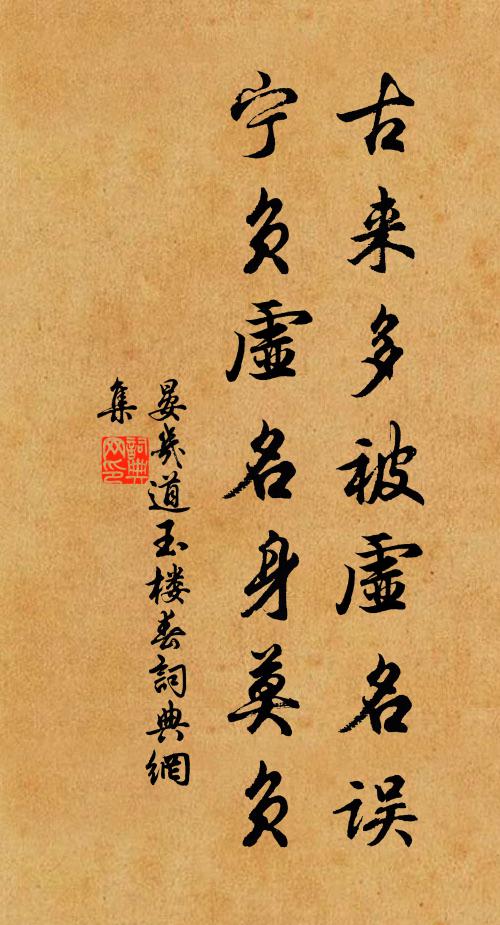 古来多被虚名误
宁负虚名身莫负
晏几道玉楼春詞典網
集
詞典网印